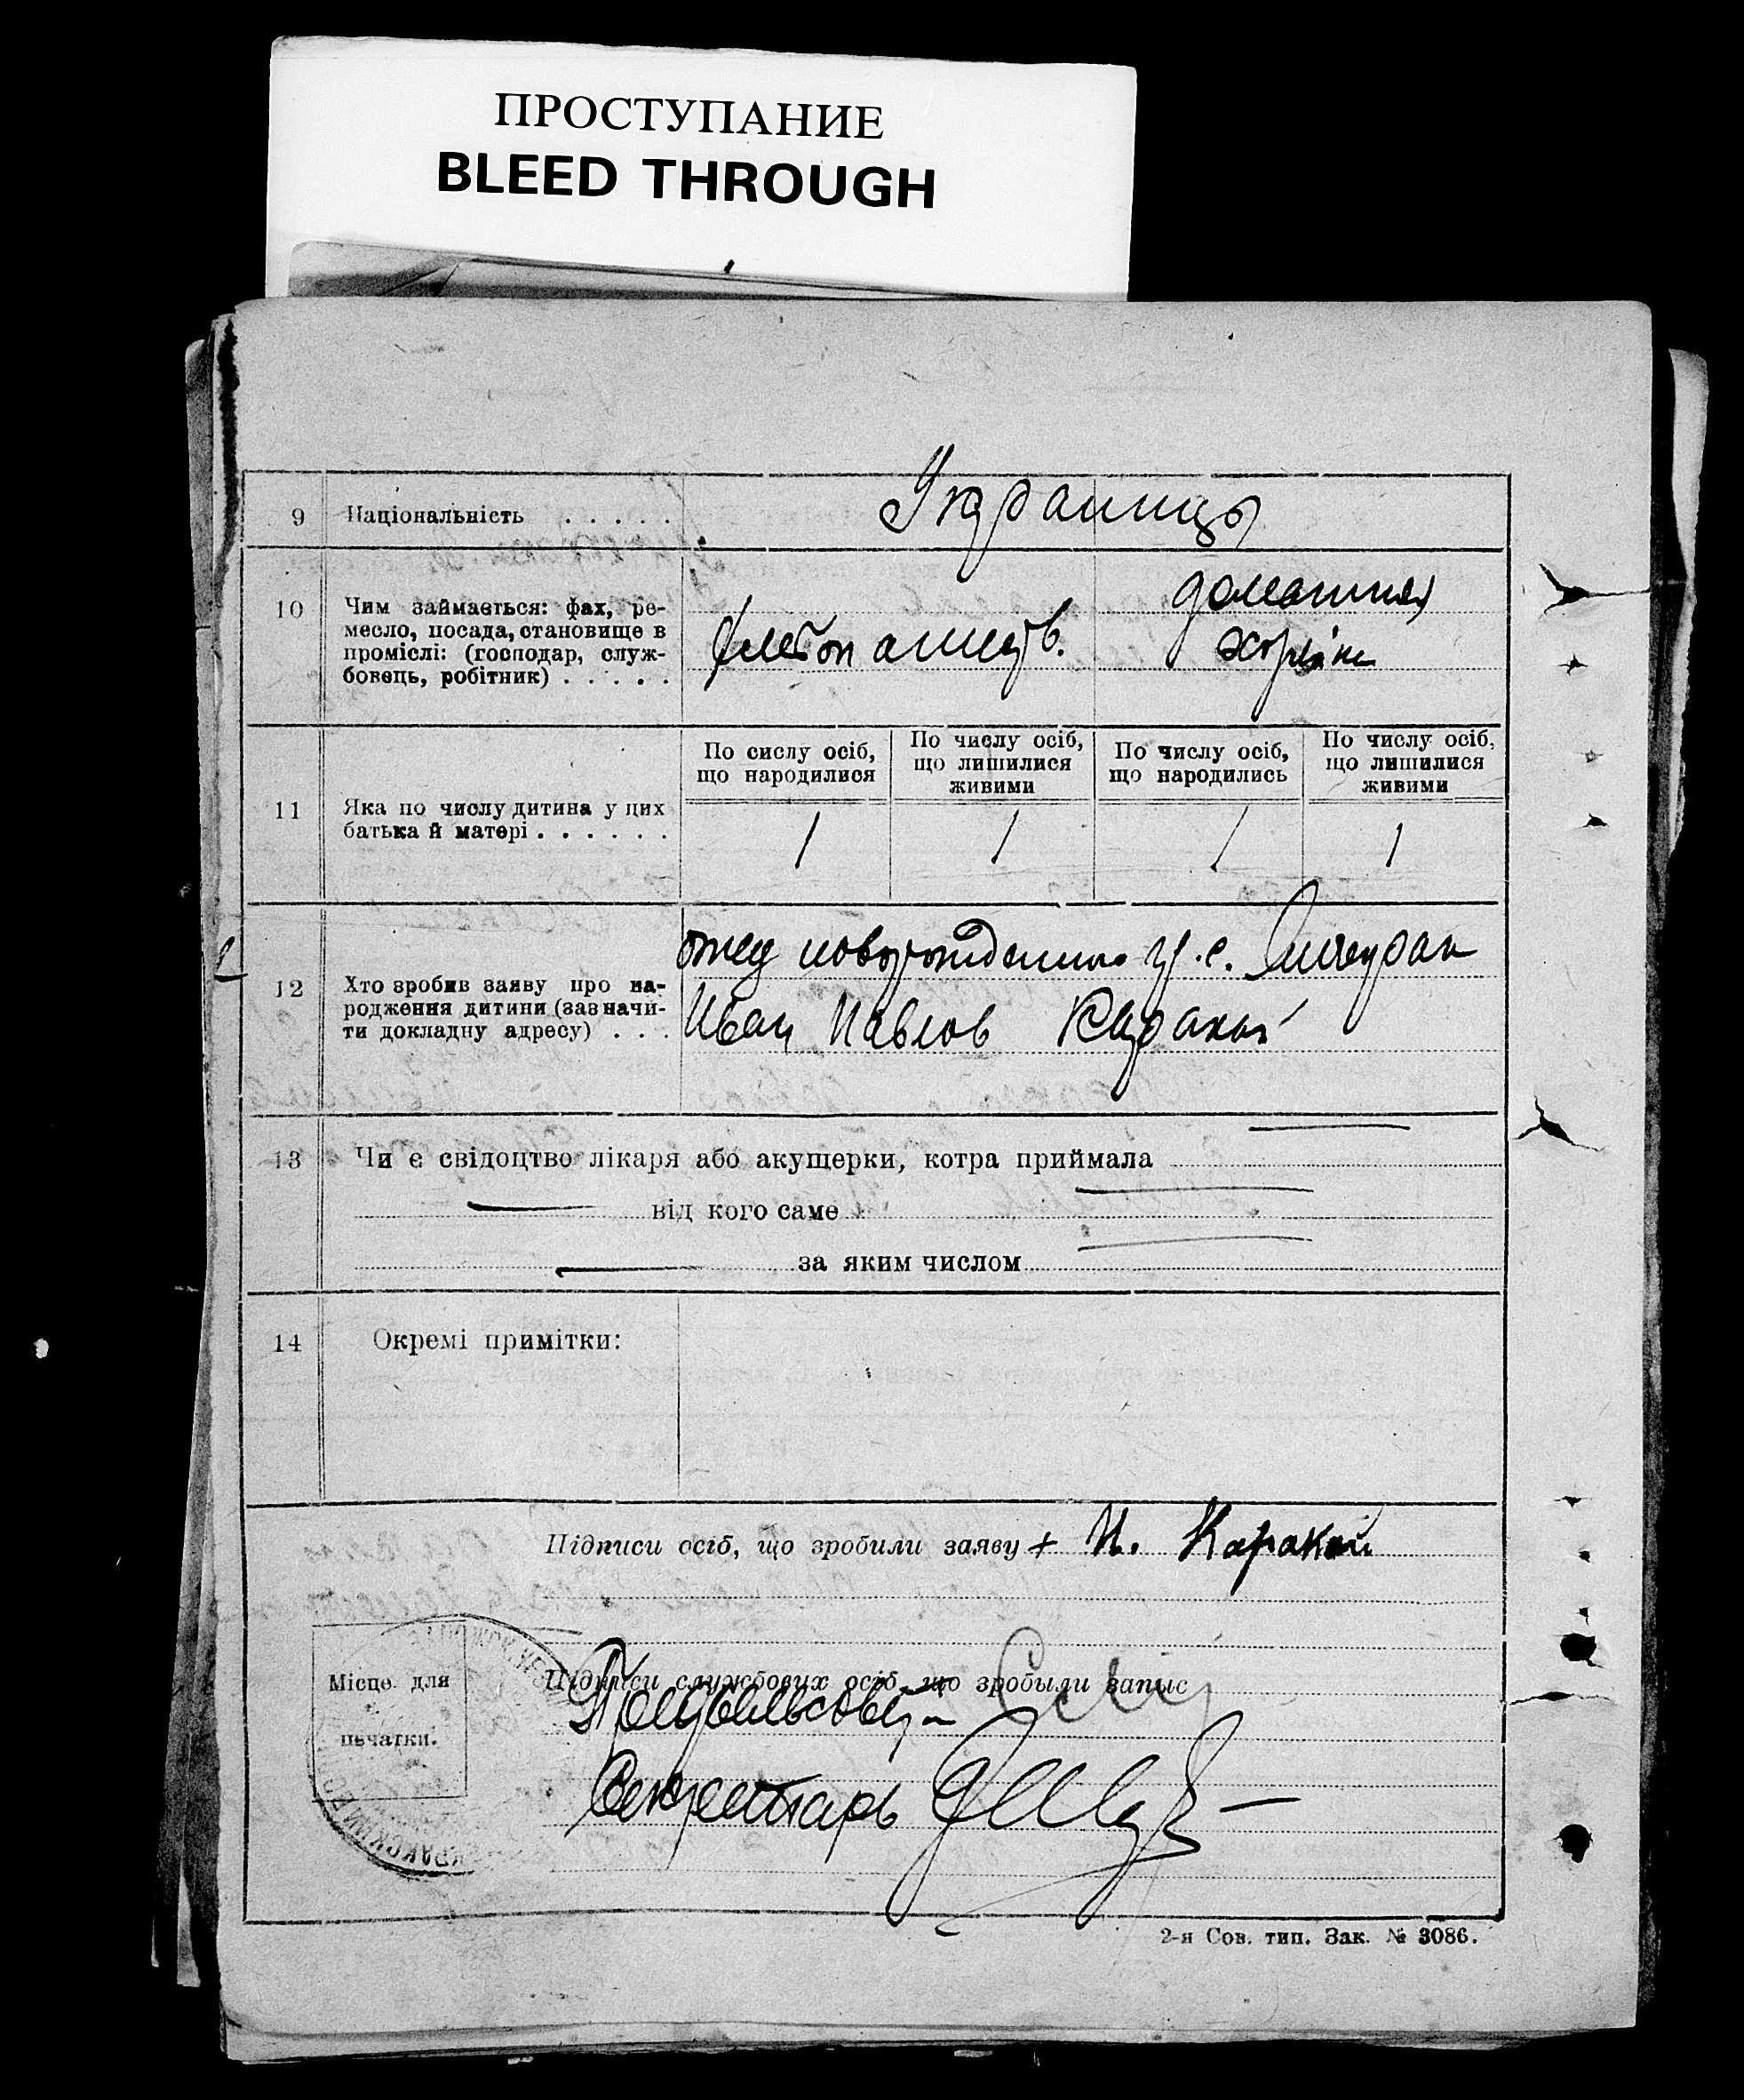 ПРОСТУПАНИЕ
BLEED THROUGH
9 Національність . . . . .
Украинцы
10 Чим займається: фах, ре-
месло, посада, становище в
проміслі: (господар, служ-
бовець, робітник) . . . . .
хлебопашеств.
домашняя
11 Яка по числу дитина у цих
батька й матері . . . . . .
По сислу осіб,
що народилися
По числу осіб,
що лишилися
живими
По числу осіб,
що народились
По числу осіб,
що лишилися
живими
1 1 1 1
12 Хто зробив заяву про на-
родження дитини (зазначи-
ти докладну адресу) . . .
отец новорожденного гр. с.
Иван Павлов Каракай
13 Чи є свідоцтво лікаря або акущерки, котра приймала
від кого саме
за яким числом
14 Окремі примітки:
Підписи осіб, що зробили заяву + И. Каракай
Місце для
печатки.
Підписи службових осіб, що зробыли запыс
Секретарь
2-я Сов. тип. Зак. № 3086.